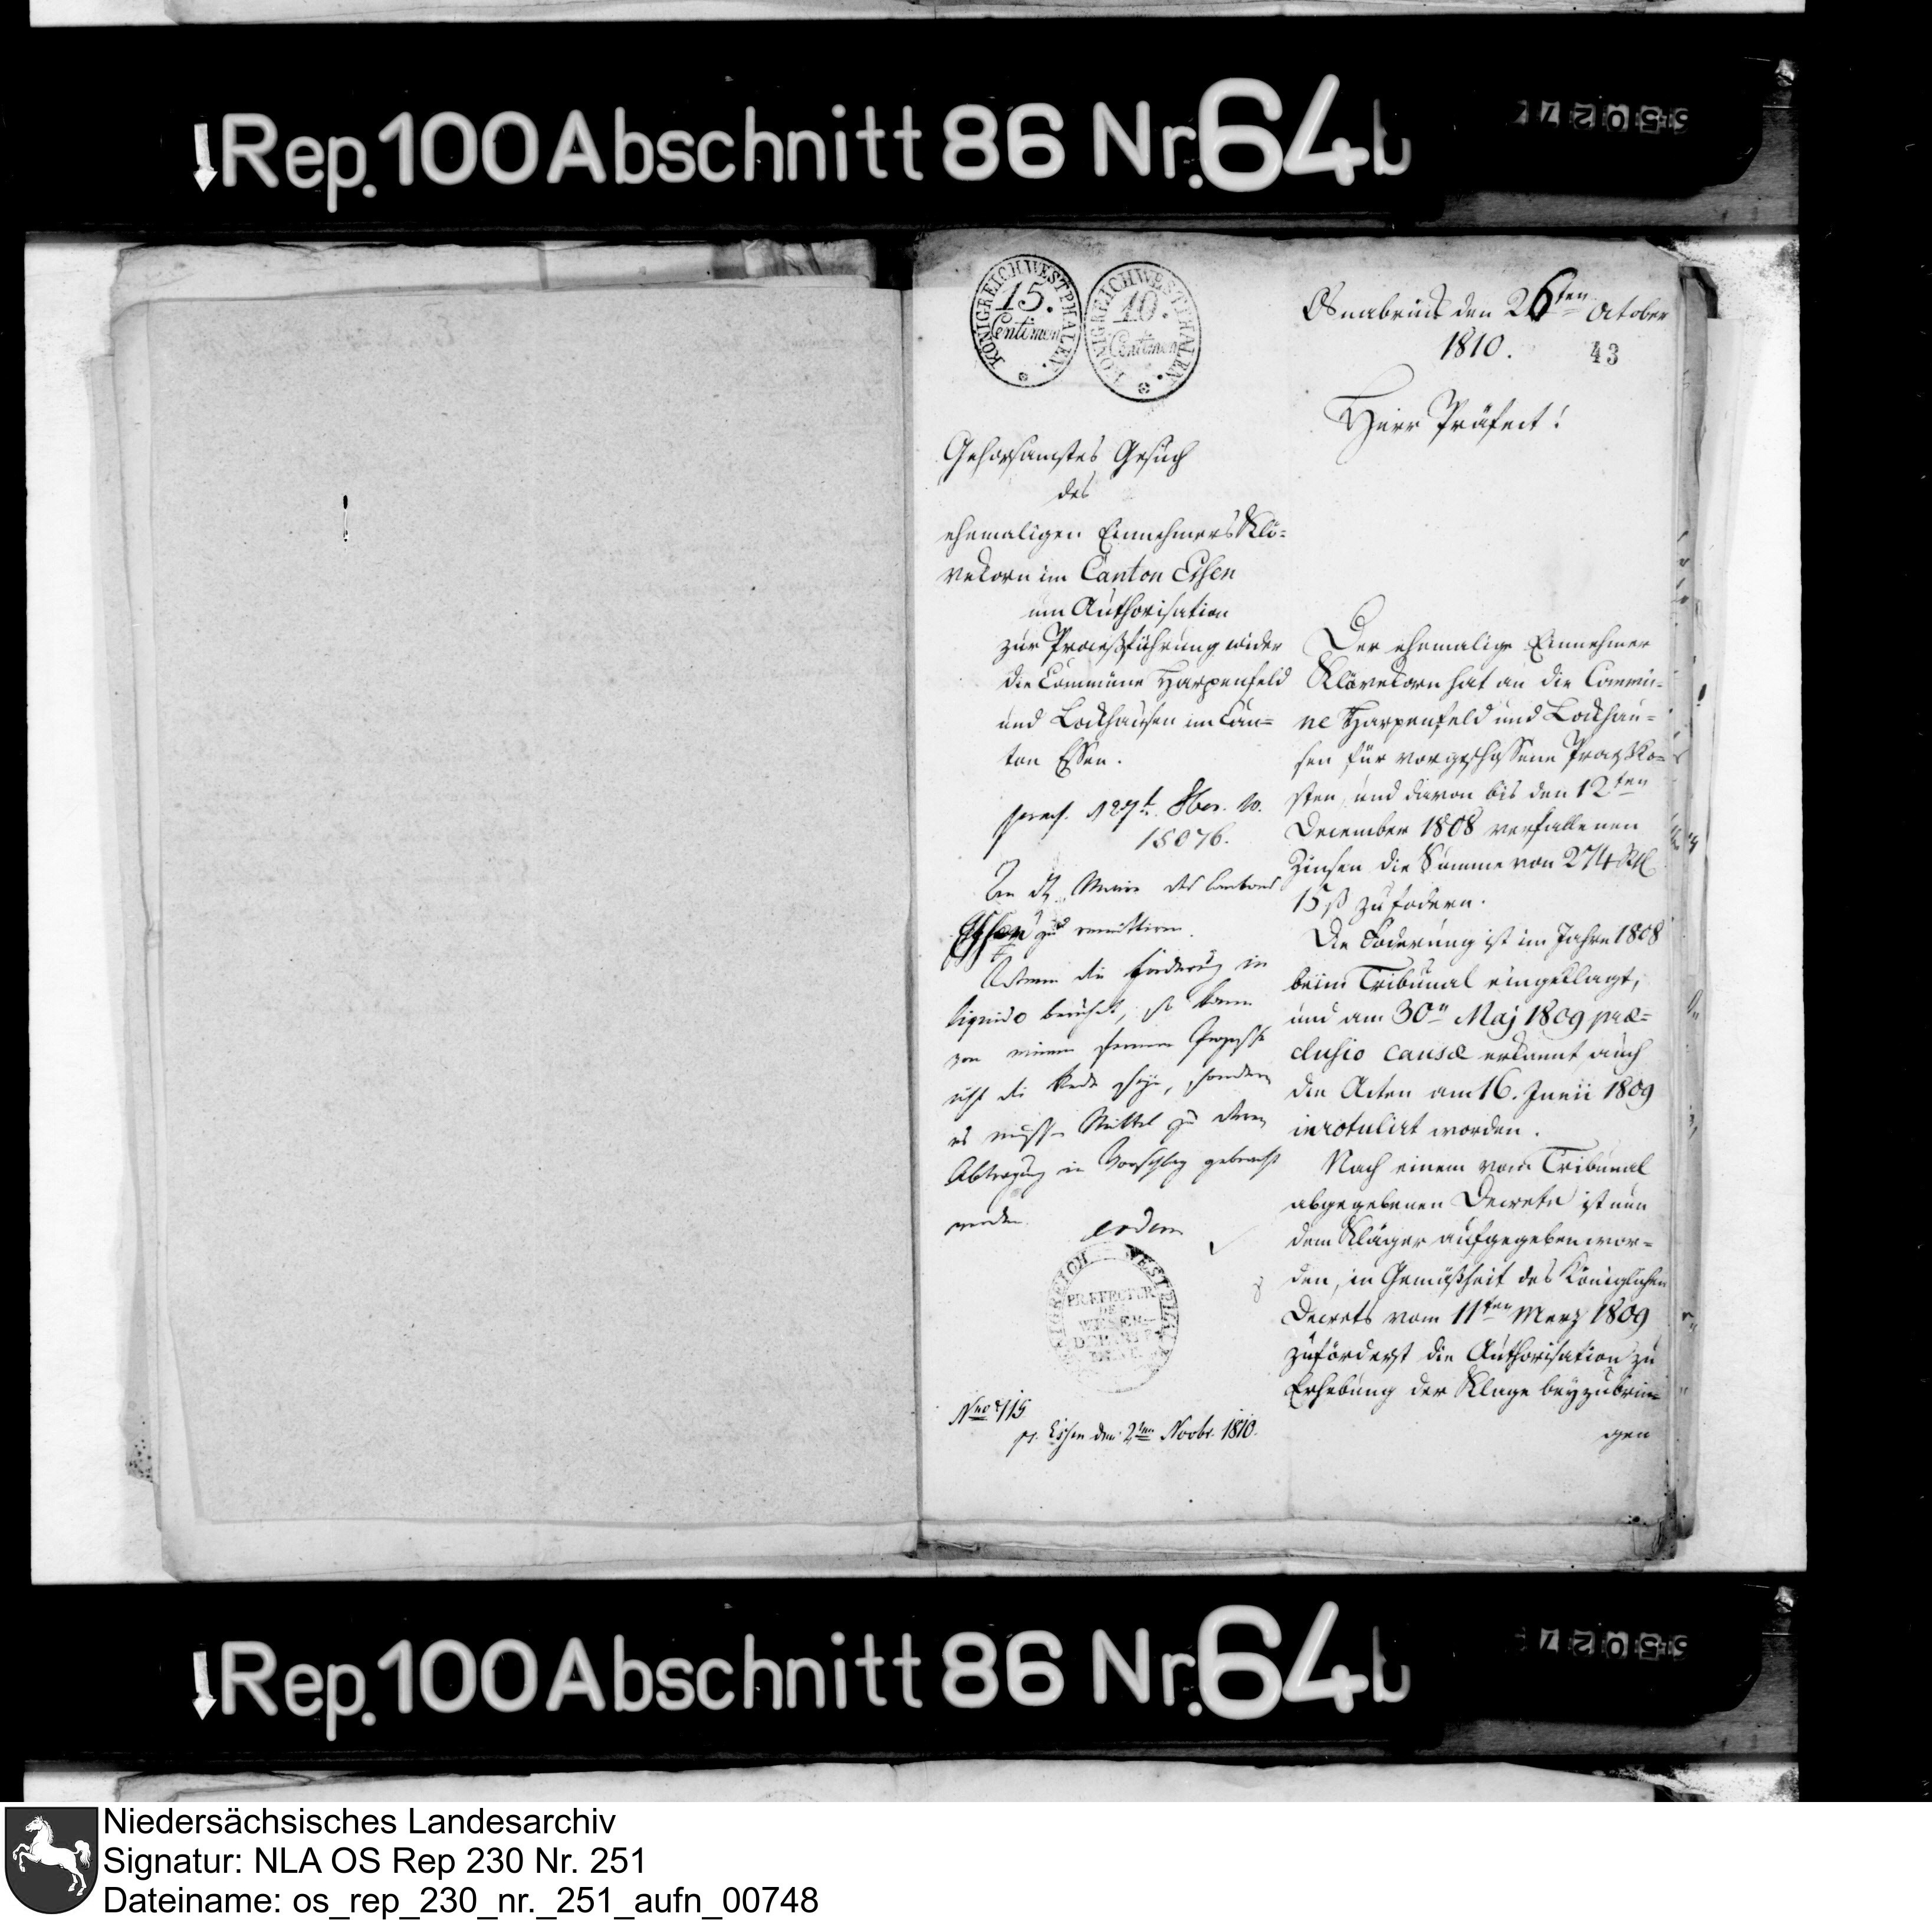 Rep. 100 Abschnitt 86 Nr. 64b
KÖNIGREICH WESTPHALEN.
15.
Centimen
KÖNIGREICH WESTPHALEN.
10.
Centimen
Osnabrück den 26ten October
1810.
43
Herr Präfect!
Gehorsamstes Gesuch
des
ehemaligen Einnehmers Klö=
vekorn im Canton Essen
um Authorisation
zur Proceßführung wider
die Commüne Harpenfeld
und Lockhausen im Can=
ton Essen.
praes. d 27t. 8br. 10.
15076.
An Maire des Cantons
Essen zu remittiren.
Wenn die Forderung in
liquido beruhet, so kann
von einem ferneren Processe
nicht die Rede seyn, sondern
es müssen Mittel zu deren
Abtragung in Vorschlag gebracht
werden.
eodem
KÖNIGREICH WESTPHALEN
PRÆFECTUR
DES
WESER-
DEPARTE-
MENTS
Nro 115
pr. Essen den 2ten Novbr. 1810.
Der ehemalige Einnehmer
Klövekorn hat an die Commü-
ne Harpenfeld und Lockhau=
sen für vorgeschossene Proceßko=
sten, und davon bis den 12ten
December 1808 verfallenen
Zinsen die Summe von 274 Rtl
15 ß zu fodern.
Die Foderung ist im Jahre 1808
beim Tribunal eingeklagt,
und am 30n Maj 1809 præ=
clusio causæ erkannt, auch
die Acten am 16. Junii 1809
inrotulirt worden.
Nach einem vom Tribunal
abgegebenen Decrete ist nun
dem Kläger aufgegeben wor=
den, in Gemäßheit des Königlichen
Decrets vom 11ten Merz 1809
zuförderst die Authorisation zu
Erhebung der Klage beyzubrin=
gen
Rep. 100 Abschnitt 86 Nr. 64b
Niedersächsisches Landesarchiv
Signatur: NLA OS Rep 230 Nr. 251
Dateiname: os_rep_230_nr._251_aufn_00748